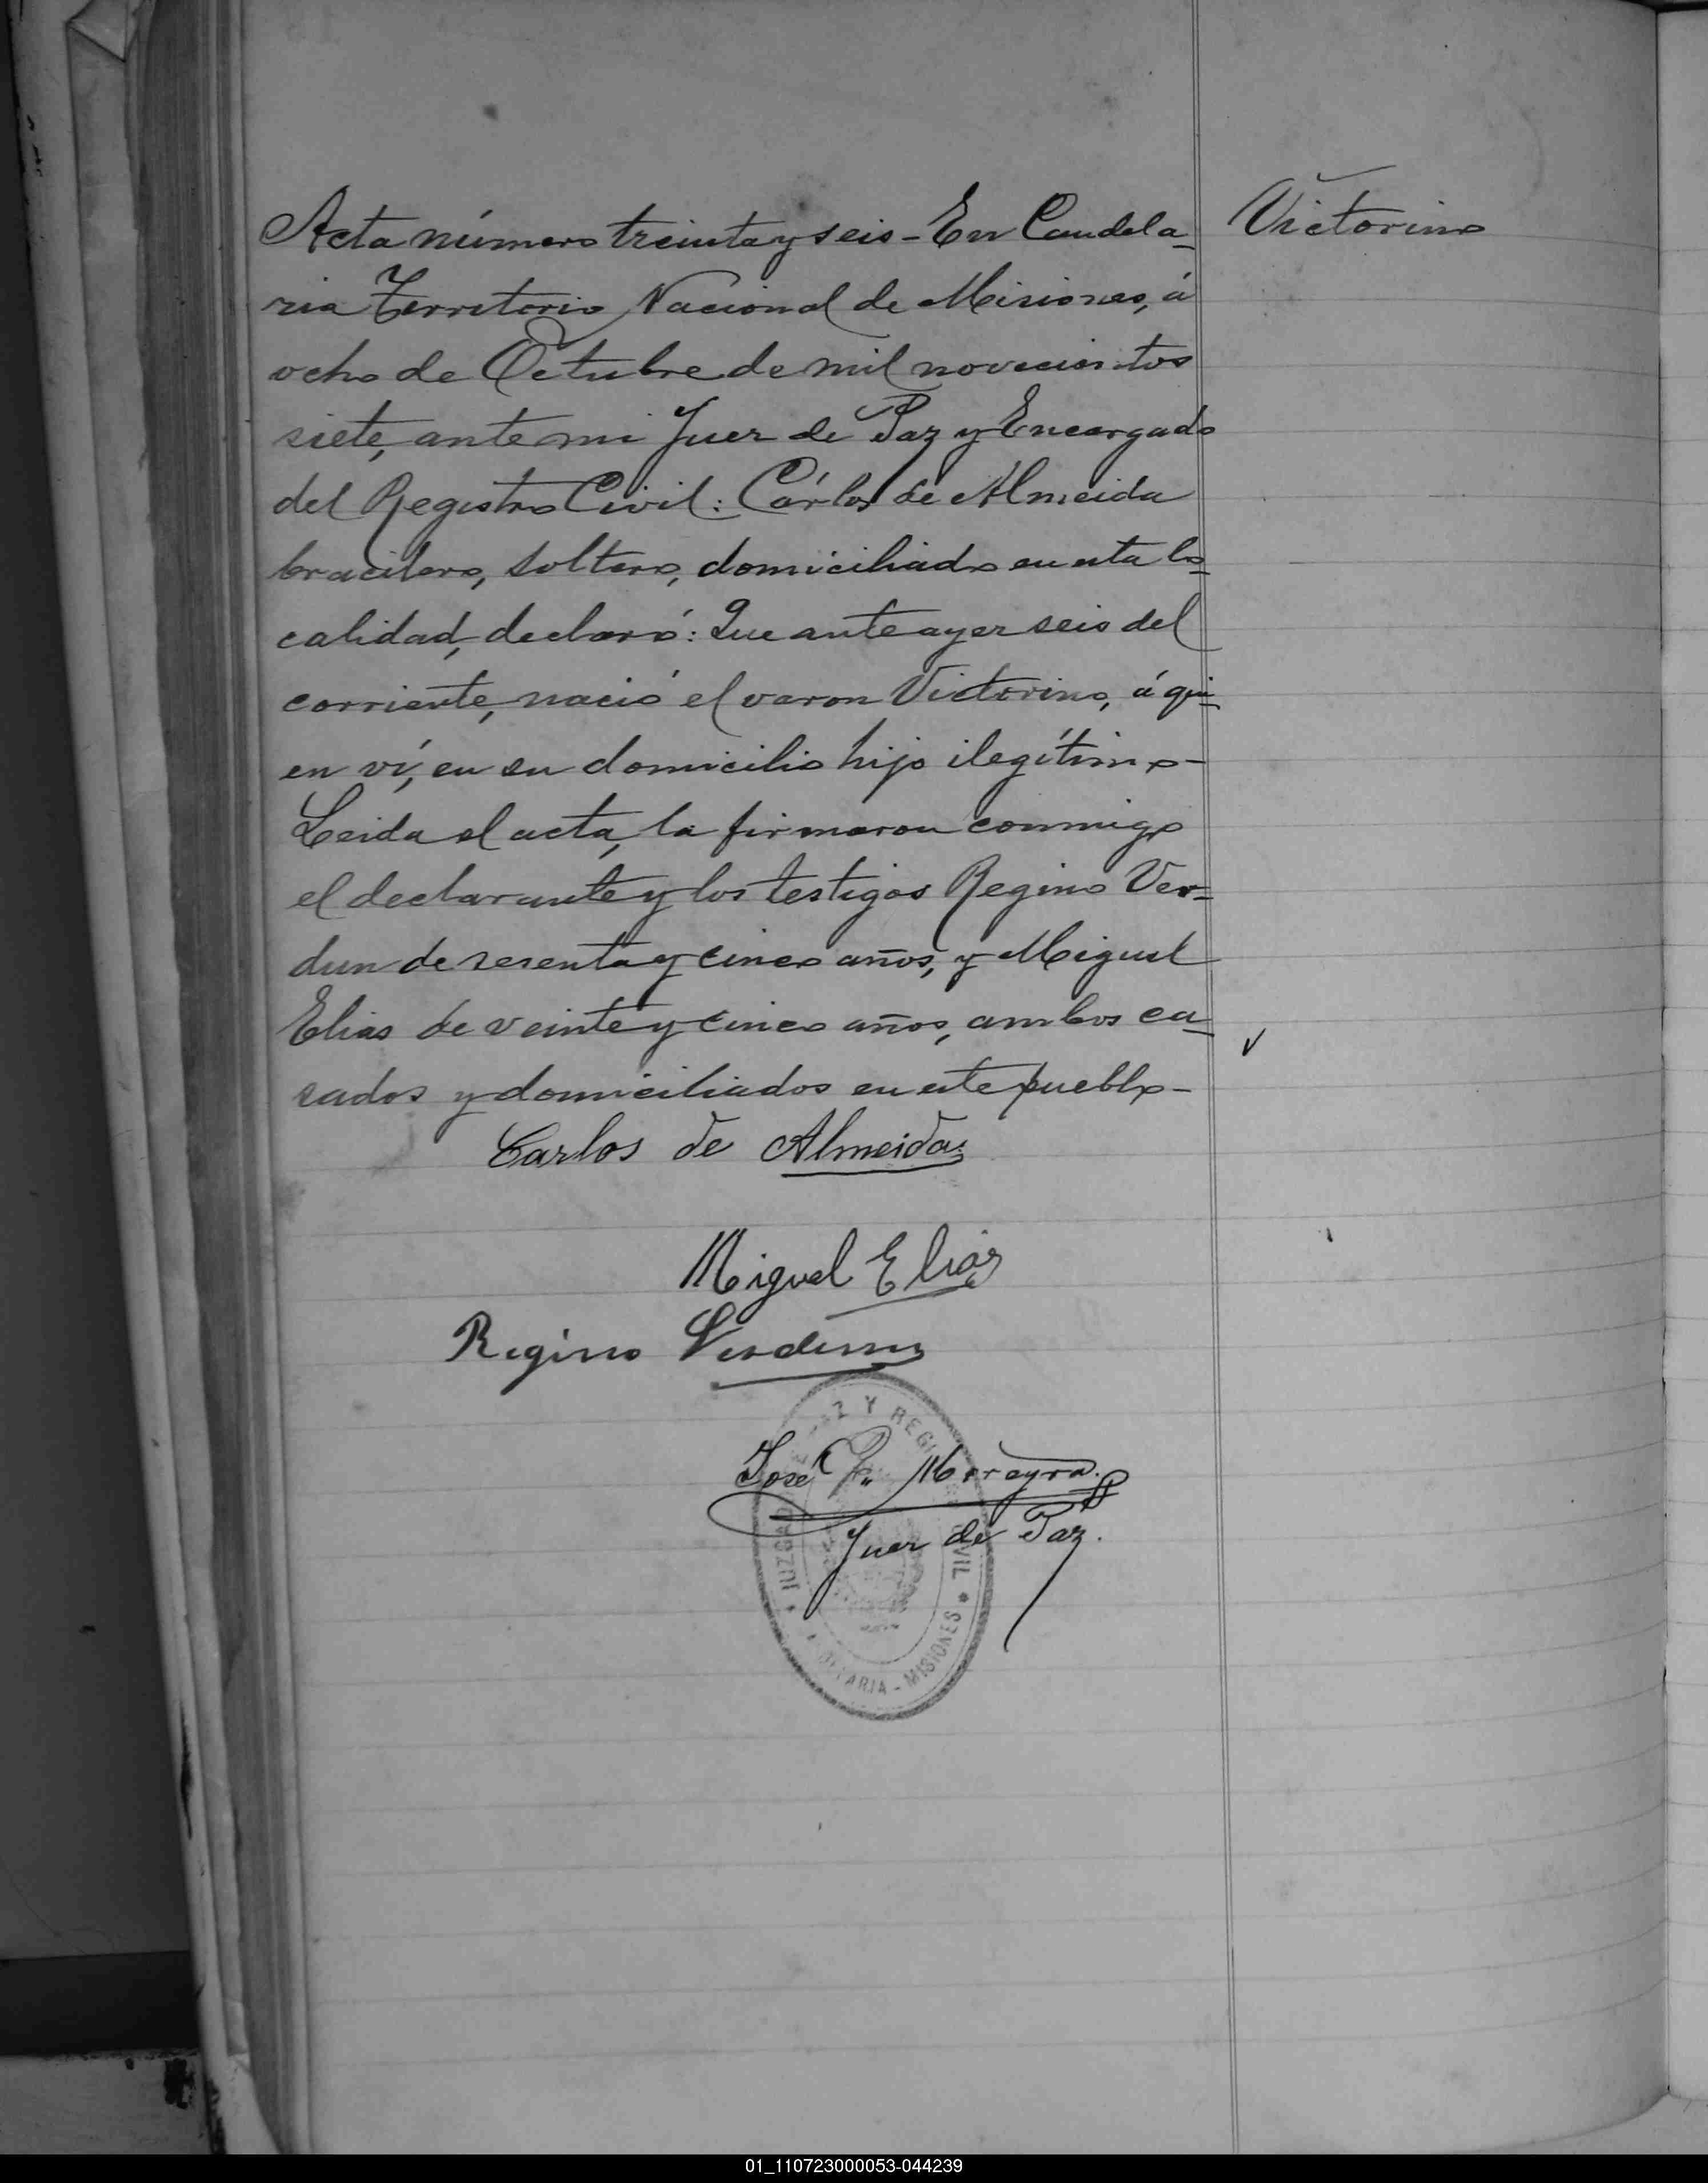 Victorino
Acta número treinta y seis - En Candela-
ria Territorio Nacional de Misiones, á
ocho de Octubre de mil novecientos
siete, ante mi Juez de Paz y Encargado
del Registro Civil: Cárlos de Almeida
bracilero, soltero, domiciliado en esta lo-
calidad, declaró: Que anteayer seis del
corriente, nació el varon Victorino, á qui-
en ví, en su domicilio hijo ilegítimo-
Leida el acta, la firmaron conmigo
el declarante y los testigos Regino Ver-
dun de sesenta y cinco años, y Miguel
Elias de veinte y cinco años, ambos ca-
sados y domiciliados en este pueblo-
Carlos de Almeida
Miguel Elias
Regino Verdun
José Morayra.
Juez de Paz.
JUZGADO DE PAZ Y REGISTRO CIVIL
CANDELARIA - MISIONES
01_110723000053-044239